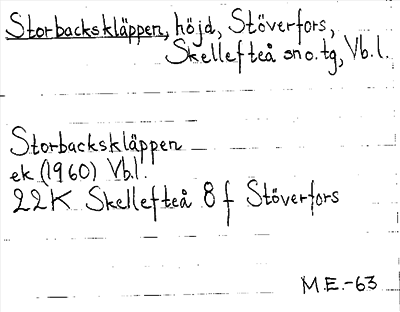 Storbackskläppen, höjd, Stöverfors,
Skellefteå sn o. tg, Vb.l.
Storbackskläppen
ek (1960) Vb.l.
22K Skellefteå 8 f Stöverfors
M.E.-63